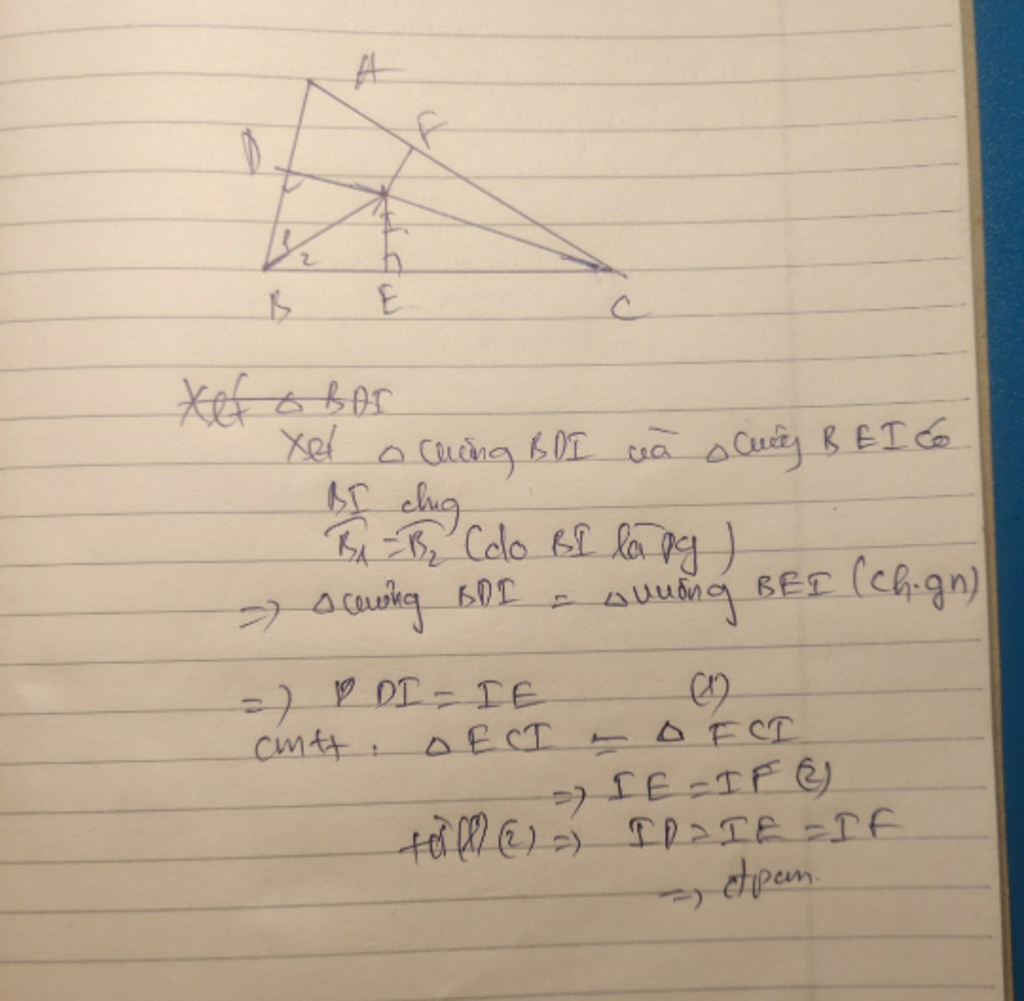 A
D
F
I
1
2
B
E
C
Xét △ BDI
Xét △ vuông BDI và △ vuông BEI có
BI chg
B₁ = B₂ (do BI là pg)
=> △ vuông BDI = △ vuông BEI (ch.gn)
=> DI = IE (1)
cmtt. △ ECI = △ FCI
=> IE = IF (2)
từ (1) (2) => ID = IE = IF
=> đpcm.